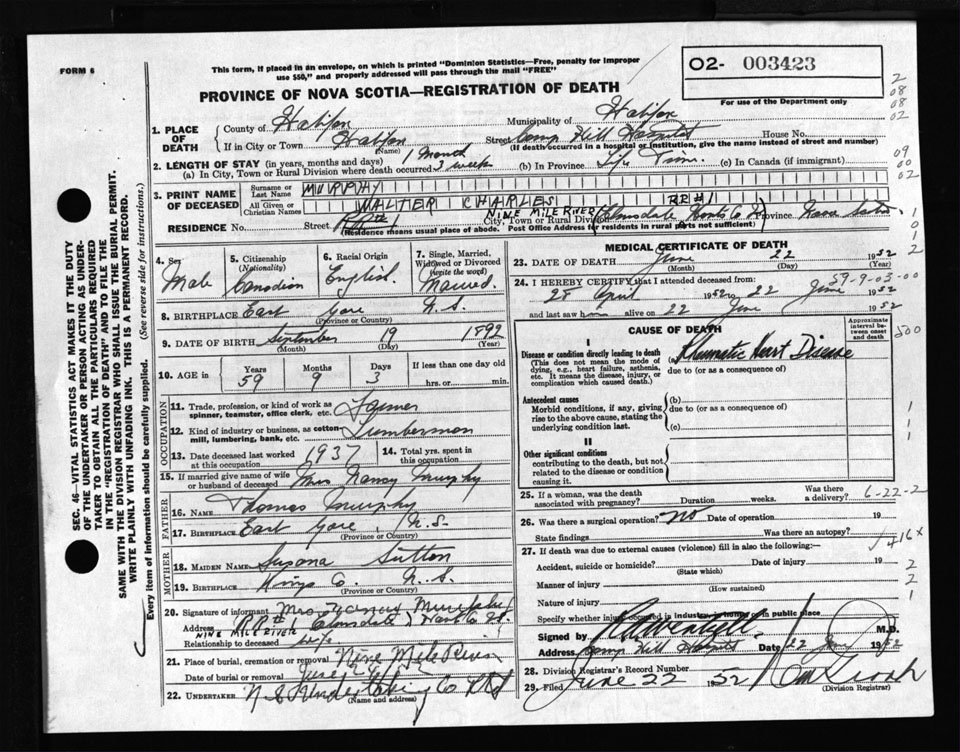 FORM 6
This form, if placed in an envelope, on which is printed "Dominion Statistics—Free, penalty for improper
use $50," and properly addressed will pass through the mail "FREE"
O2- 003423
For use of the Department only
PROVINCE OF NOVA SCOTIA—REGISTRATION OF DEATH
2
08
08
02
09
00
02
1. PLACE OF DEATH
County of Halifax
Municipality of Halifax
If in City or Town Halifax (Name)
Street Camp Hill Hospital House No.
(If death occurred in a hospital or institution, give the name instead of street and number)
2. LENGTH OF STAY (in years, months and days) 1 Month
(a) In City, Town or Rural Division where death occurred 3 weeks (b) In Province Life Time. (c) In Canada (if immigrant)
3. PRINT NAME OF DECEASED
Surname or Last Name MURPHY
All Given or Christian Names WALTER CHARLES
RR#1
RESIDENCE No. Street RR#1 NINE MILE RIVER City, Town or Rural Division Elmsdale Hants Co Province Nova Scotia.
(Residence means usual place of abode. Post Office Address for residents in rural parts not sufficient)
4. Sex
Male
5. Citizenship (Nationality)
Canadian
6. Racial Origin
English.
7. Single, Married, Widowed or Divorced (write the word)
Married.
8. BIRTHPLACE East Gore N.S.
(Province or Country)
9. DATE OF BIRTH September 19 1892
(Month) (Day) (Year)
10. AGE in Years 59 Months 9 Days 3
If less than one day old
hrs. or min.
OCCUPATION
11. Trade, profession or kind of work as
spinner, teamster, office clerk, etc. Farmer
12. Kind of industry or business, as cotton
mill, lumbering, bank, etc. Lumberman
13. Date deceased last worked
at this occupation 1937
14. Total yrs. spent in
this occupation
15. If married give name of wife
or husband of deceased Mrs Nancy Murphy
FATHER
16. NAME Thomas Murphy
17. BIRTHPLACE East Gore, N.S.
(Province or Country)
MOTHER
18. MAIDEN NAME Susana Sutton
19. BIRTHPLACE Kings Co. N.S.
(Province or Country)
20. Signature of informant Mrs Nancy Murphy
Address RR#1 Elmsdale Hants Co
NINE MILE RIVER
Relationship to deceased wife
21. Place of burial, cremation or removal Nine Mile River
Date of burial or removal June 24
22. UNDERTAKER N S Undertaking Co Ltd
(Name and address)
MEDICAL CERTIFICATE OF DEATH
23. DATE OF DEATH June 22 1952
(Month) (Day) (Year)
24. I HEREBY CERTIFY that I attended deceased from: 59-9-03-00
28 April 1952 to 22 June 1952
and last saw him alive on 22 June 1952
CAUSE OF DEATH
Approximate interval between onset and death
I
Disease or condition directly leading to death (a) Rheumatic Heart Disease
(This does not mean the mode of dying, e.g., heart failure, asthenia, etc. It means the disease, injury, or complication which caused death.)
due to (or as a consequence of)
Antecedent causes
Morbid conditions, if any, giving rise to the above cause, stating the underlying condition last.
(b)
due to (or as a consequence of)
(c)
II
Other significant conditions
contributing to the death, but not related to the disease or condition causing it.
25. If a woman, was the death
associated with pregnancy? Duration weeks. Was there a delivery? 6-22-2
26. Was there a surgical operation? NO Date of operation 19
State findings Was there an autopsy?
416x
27. If death was due to external causes (violence) fill in also the following:—
Accident, suicide or homicide? Date of injury 19
(State which)
Manner of injury
(How sustained)
Nature of injury
Specify whether injury occurred in industry, in home or in public place
Signed by M.D.
Address Camp Hill Hospital Date 22 June 1952
28. Division Registrar's Record Number
29. Filed June 22 1952
(Division Registrar)
SEC. 46—VITAL STATISTICS ACT MAKES IT THE DUTY
OF THE UNDERTAKER OR PERSON ACTING AS UNDERTAKER
TO OBTAIN ALL THE PARTICULARS REQUIRED
IN THE "REGISTRATION OF DEATH" AND TO FILE THE
SAME WITH THE DIVISION REGISTRAR WHO SHALL ISSUE THE BURIAL PERMIT.
WRITE PLAINLY WITH UNFADING INK. THIS IS A PERMANENT RECORD.
Every item of information should be carefully supplied. (See reverse side for instructions.)